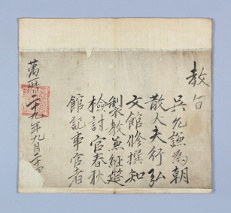 教旨
吳允謙爲朝
散大夫行弘
文館修撰知
製敎兼經筵
檢討官春秋
館記事官者
萬曆二十九年九月 日